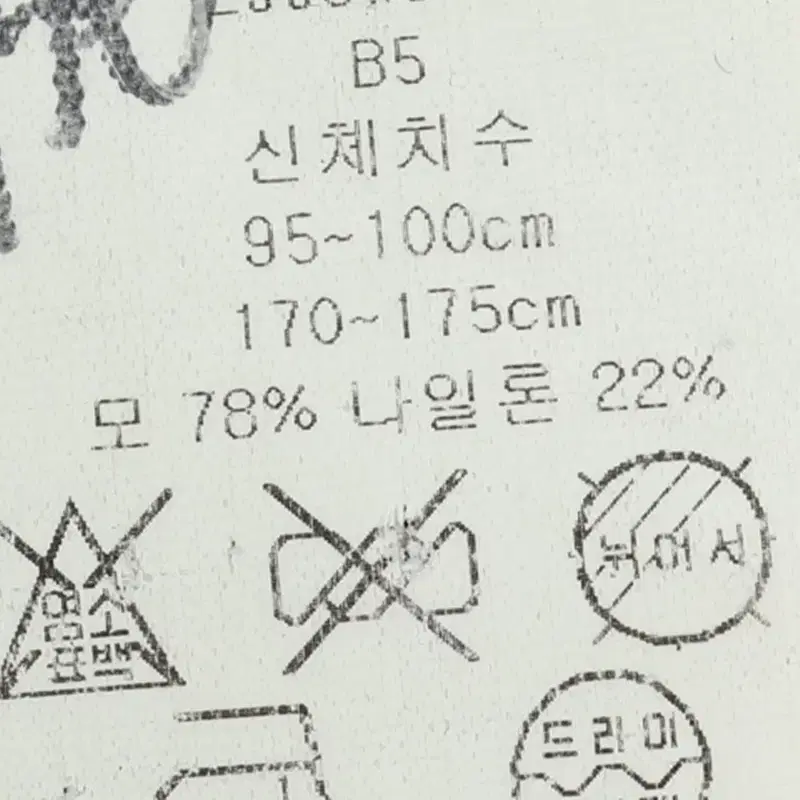 B5
신체치수
95~100cm
170~175cm
모 78% 나일론 22%
염소
표백
뉘어서
드라이